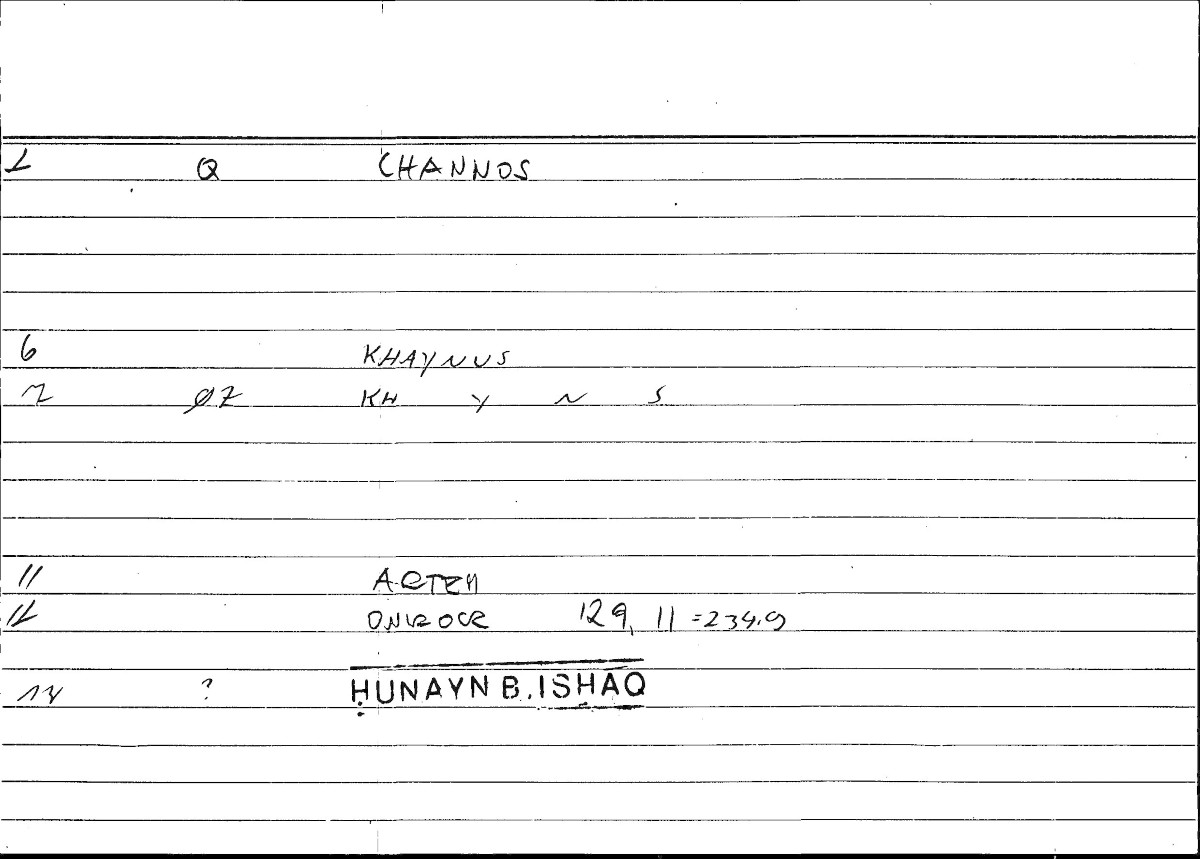 1 Q CHANNOS
6 KHAYNUS
7 ØZ KH Y N S
11 ARTEM
12 ONIROCR 129, 11 = 234.9
14 ? ḤUNAYN B. ISḤAQ